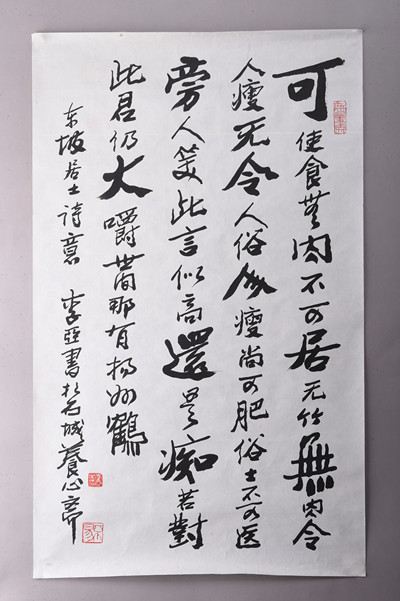 可使食無肉不可居无竹無肉令
人瘦无令人俗人瘦尚可肥俗士不可医
旁人笑此言似高還是痴若對
此君仍大嚼世间那有扬州鶴
东坡居士诗意 李亞書於石城養心斋